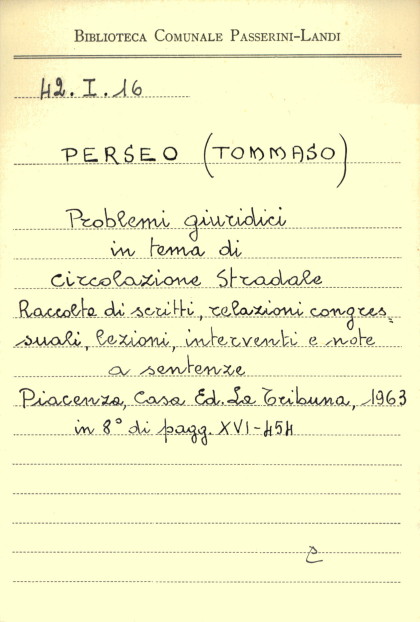 BIBLIOTECA COMUNALE PASSERINI-LANDI
42.I.16
PERSEO (TOMMASO)
Problemi giuridici
in tema di
circolazione stradale
Raccolta di scritti, relazioni congres,
suali, lezioni, interventi e note
a sentenze
Piacenza, Casa Ed. La Tribuna, 1963
in 8° di pagg. XVI-454